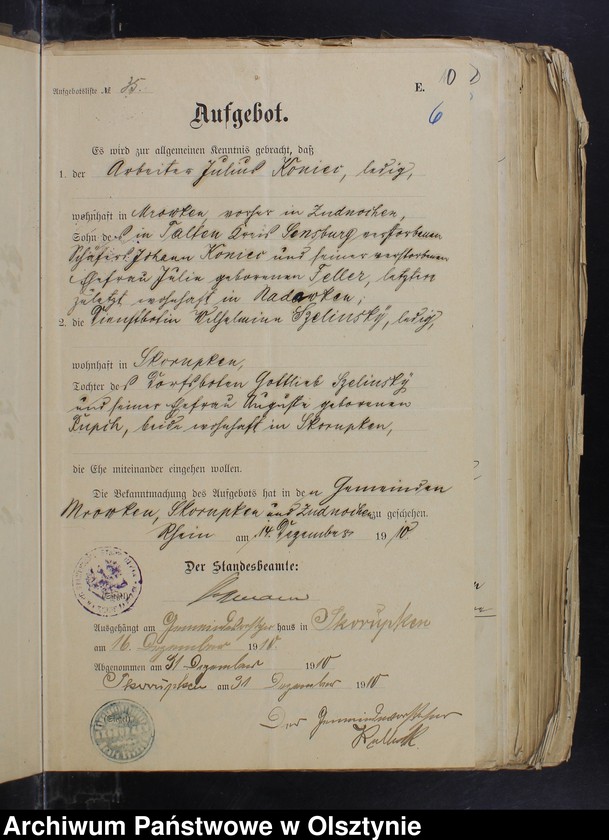 Aufgebotsliste № 35.
E.
10
6
Aufgebot.
Es wird zur allgemeinen Kenntnis gebracht, daß
1. der Arbeiter Julius Koniec, ledig,
wohnhaft in Mrowken, vorher in Zudnochen,
Sohn des in Talten Kreis Sensburg verstorbenen
Schäfers Johann Koniec und seiner verstorbenen
Ehefrau Julie geborenen Teller, letztere
zuletzt wohnhaft in
2. die Dienstbotin Wilhelmine Szelinsky, ledig,
wohnhaft in Skorupken,
Tochter des Dorfsboten Gottlieb Szelinsky
und seiner Ehefrau Auguste geborenen
beide wohnhaft in Skorupken,
die Ehe miteinander eingehen wollen.
Die Bekanntmachung des Aufgebots hat in den Gemeinden
Mrowken, Skorupken und Zudnochen zu geschehen.
Rhein am 14. Dezember 1910.
Der Standesbeamte:
Ausgehängt am Gemeindevorsteher haus in Skorupken
am 16. Dezember 1910.
Abgenommen am 31 Dezember 1910
Skorupken am 31 Dezember 1910
Der Gemeindevorsteher
Archiwum Państwowe w Olsztynie